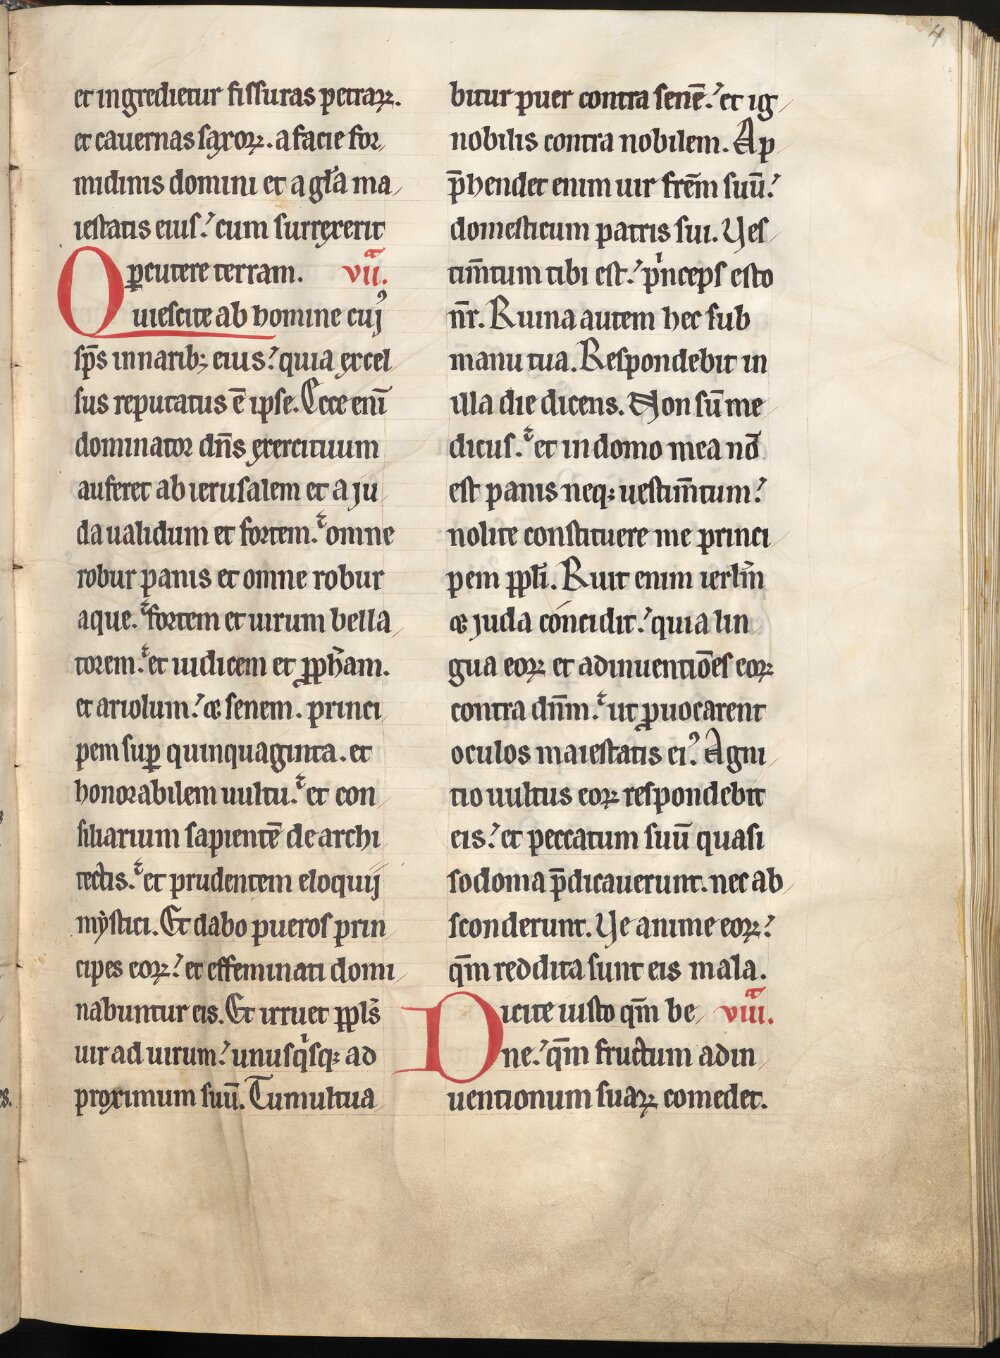 4
et ingredietur fissuras petraꝝ.
et cauernas saxoꝝ. a facie for
midinis domini et a gl̃a ma
iestatis eius.᾽ cum surrexerit
ꝑcutere terram. vii.ᵃ
Quiescite ab homine cuiꝰ
sp̄s in narib; eius.᾽ quia excel
sus reputatus ē ipse. Ecce eni̅
dominator dn̄s exercituum
auferet ab ierusalem et a ju
da ualidum et fortem. omne
robur panis et omne robur
aque. fortem et uirum bella
torem. et iudicem et ꝓph̄am.
et ariolum.᾽ & senem. princi
pem suꝑ quinquaginta. et
honorabilem uultu. et con
siliarium sapientē de archi
tectis. et prudentem eloquij
mẏstici. Et dabo pueros prin
cipes eoꝝ.᾽ et effeminati domi
nabuntur eis. Et irruet ppl̃s
uir ad uirum.᾽ unusqͥsq; ad
proximum suū. Tumultua
bitur puer contra senē.᾽ et ig
nobilis contra nobilem. Ap
p̄hendet enim uir frēm suū.᾽
domesticum patris sui. Ves
tim̄tum tibi est.᾽ pͥnceps esto
nr̄. Ruina autem hec sub
manu tua. Respondebit in
illa die dicens. Non sū me
dicus. et in domo mea nō
est panis neq; uestim̄tum.᾽
nolite constituere me princi
pem ppl̃i. Ruit enim ierl̃m
& juda concidit.᾽ quia lin
gua eoꝝ et adinuentiōes eoꝝ
contra dn̄m. ut ꝓuocarent
oculos maiestatis eiꝰ. Agni
tio uultus eoꝝ respondebit
eis.᾽ et peccatum suū quasi
sodoma p̄dicauerunt. nec ab
sconderunt. Ve anime eoꝝ.᾽
qm̄ reddita sunt eis mala.
Dicite iusto qm̄ be viii.ᵃ
ne.᾽ qm̄ fructum adin
uentionum suaꝝ comedet.